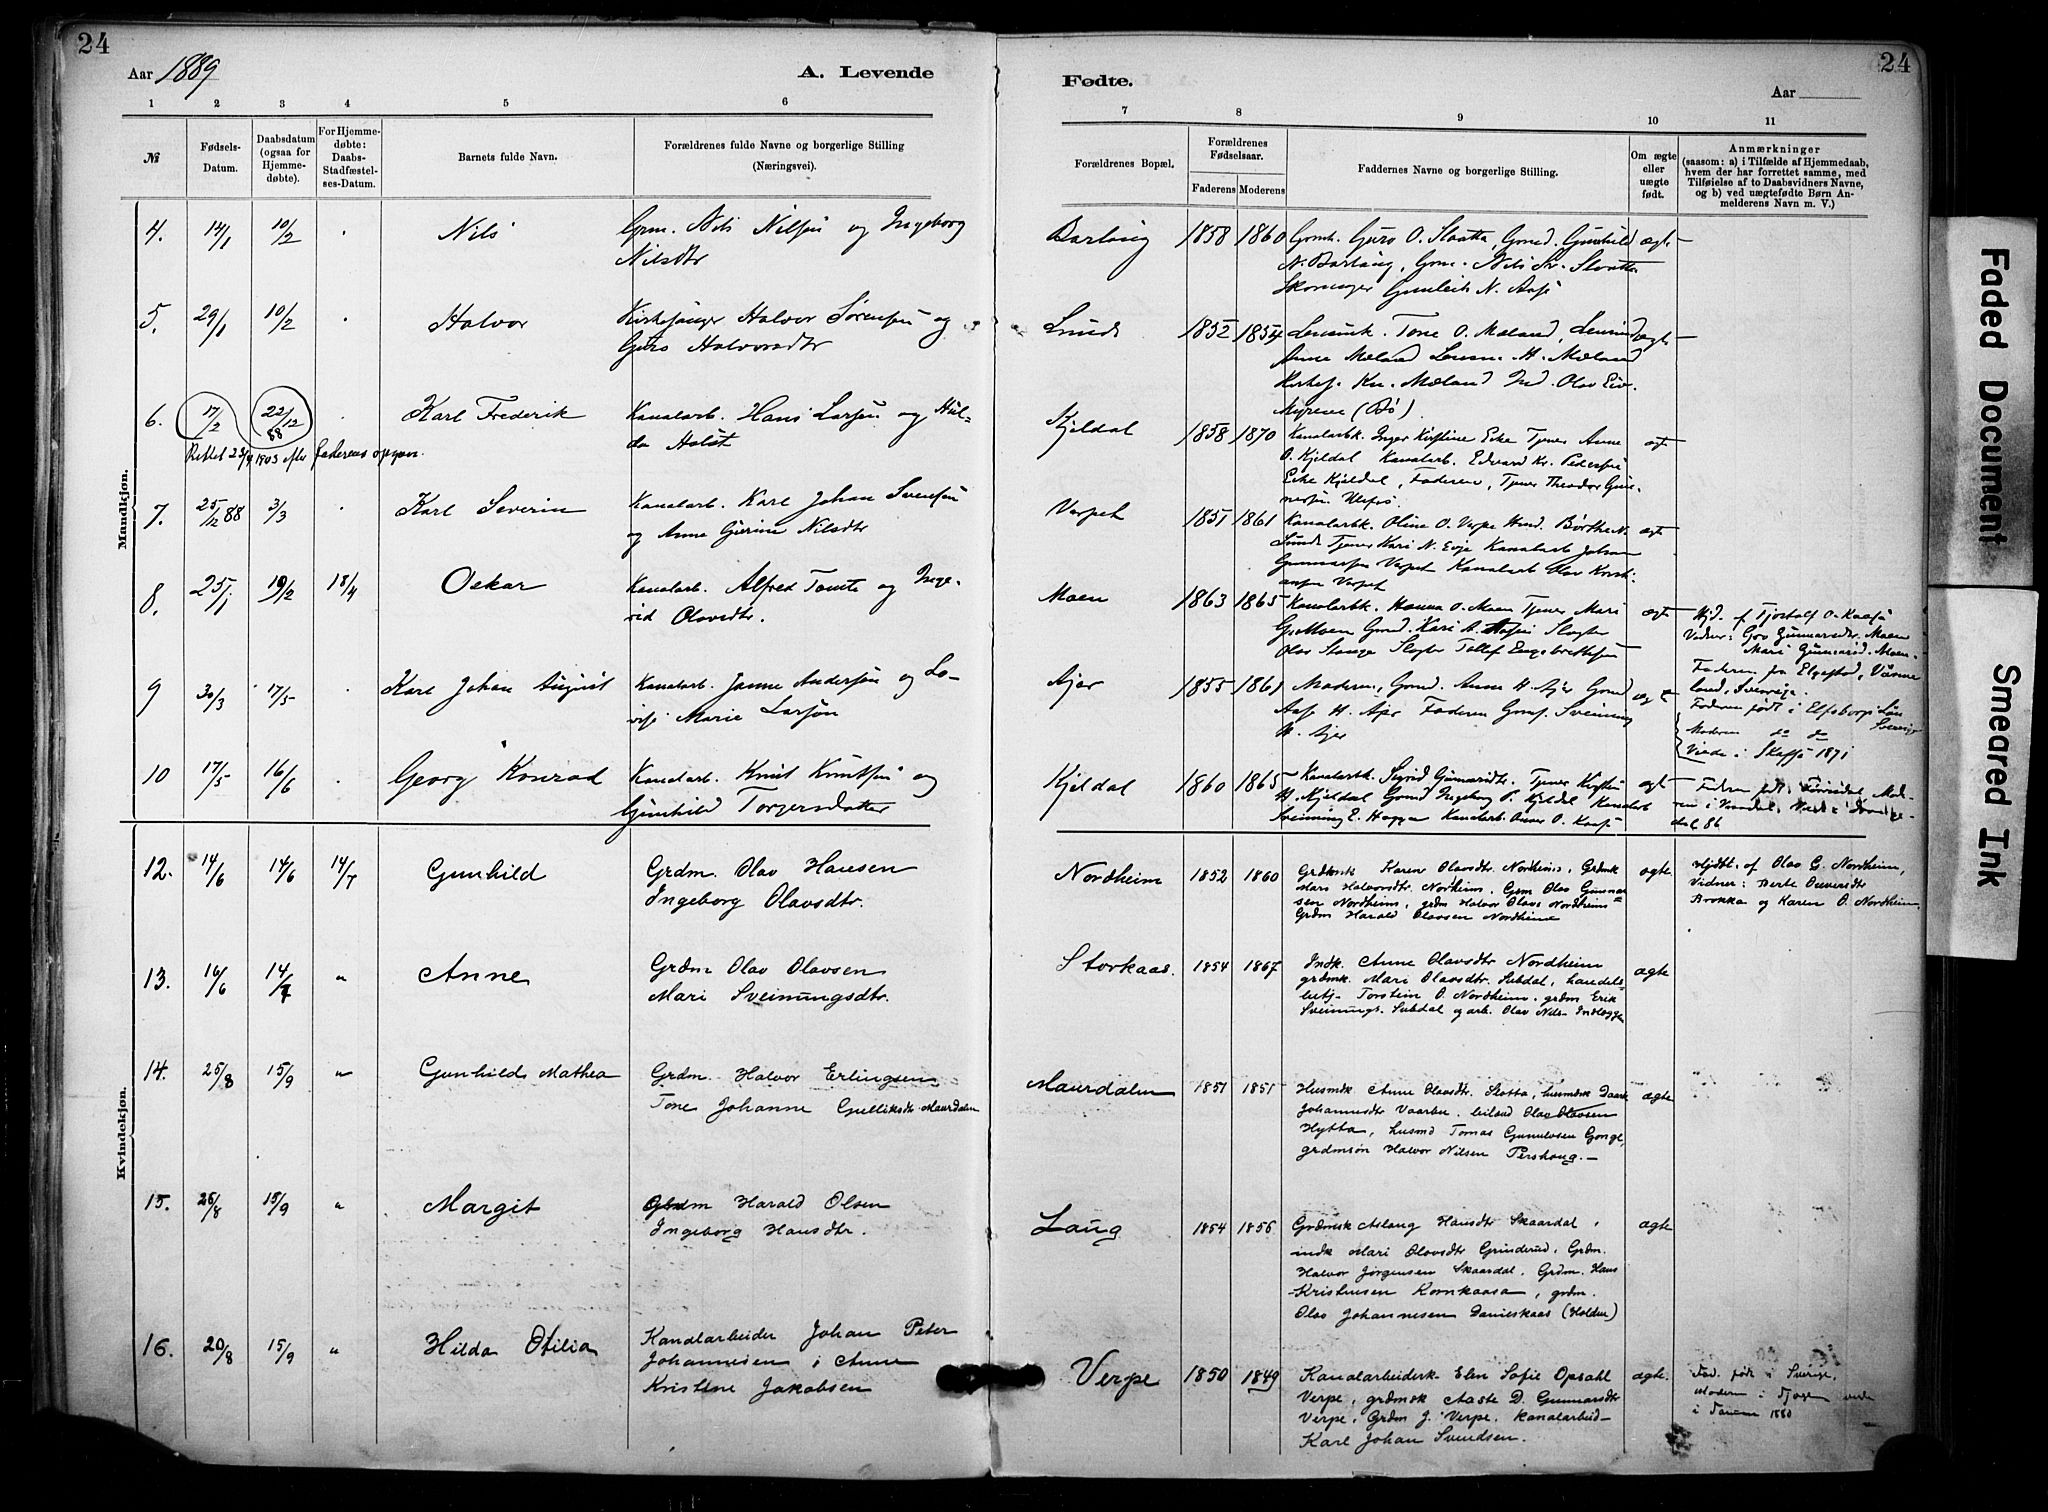 24
24
Aar 1889
A. Levende
Fødte.
Aar
1 2 3 4 5 6 7 8 9 10 11
№
Fødsels-Datum.
Daabsdatum (ogsaa for Hjemme-døbte).
For Hjemme-døbte: Daabs-Stadfæstel-ses-Datum.
Barnets fulde Navn.
Forældrenes fulde Navne og borgerlige Stilling (Næringsvei).
Forældrenes Bopæl.
Forældrenes Fødselsaar.
Faderens Moderens
Faddernes Navne og borgerlige Stilling.
Om ægte eller uægte født.
Anmærkninger
(saasom: a) i Tilfælde af Hjemmedaab, hvem der har forrettet samme, med Tilføielse af to Daabsvidners Navne, og b) ved uægtefødte Børn An-melderens Navn m. V.)
Mandkjøn.
4. 14/1 10/2 Nils
Grm. Nils Nilsen og Ingeborg
Nilsdtr
1858 1860
Gmk. Guro O. Slaatta, Gmd. Gunhild ægte
5. 29/1 10/2 Halvor
Kirkesanger Halvor Sørensen og
Guro Halvorsdtr
Lunde 1852 1854
Lensmk. Tone O. Mæland, ægte
Anne Mæland Lensm. H. Mæland
Kirkes. Kn. Mæland Ind. Olav Eiv.
Myrene (Bø).
6. 17/2 22/12 88 Karl Frederik
Rettet 23/9 1903 efter faderens opgave.
Kanalarb. Hans Larsen og Hul-
da Holst
Kjeldal 1858 1870
Kanalarbk. Inger Kirstine Eike Tjener Anne ægte
O. Kjeldal Kanalarb. Edvard Kr. Pedersen
Eike Kjeldal, Faderen, Tjener Theodor Gun-
7. 25/12 88 3/3 Karl Severin
Kanalarb. Karl Johan Svensen
og Anne Gurine Nilsdtr
Verpet 1851 1861
Kanalarbk. Oline O. Verpe Husmd. Børthe N. ægte
Lunde Tjener Kari N. Evje Kanalarb Johan
Gunnarsen Verpet Kanalarb Olav Krist-
ansen Verpet
8. 25/1 19/2 18/4 Oskar
Kanalarb. Alfred Tomte og Inge-
rid Olavsdtr.
Moen 1863 1865
Kanalarbk. Hanna O. Moen Tjener Mari ægte
G. Moen Gmd. Kari A. Aasen Slagter
Olav Stange Slagter Tollef Engebrettsen
Hjd. af Tjostolf O. Kaasa
Vidner: Gro Gunnarsdtr. Moen
Mari Gunnarsd. Moen.
9 30/3 17/5 Karl Johan August
Kanalarb. Janne Andersen og Lo-
vise Marie Larson
Ajer 1855 1861
Moderen, Gmd. Anne H. Ajer Gmd ægte
Aase H. Ajer Faderen Gms. Sveinung
H. Ajer
Faderen født i Elfsborgs Län
Sverige
Moderen do do
Viede i 1871
10 17/5 16/6 Georg Konrad
Kanalarb. Knut Knutsen og
Gunhild Torgersdatter
Kjeldal 1860 1865
Kanalarbk. Sigrid Gunnarsdtr. Tjener Kirsten ægte
H. Kjeldal Gmd Ingeborg P. Kjeldal Kanalarb
Sveinung E. Haggen Kanalarb. O. Kaasa
Kvindekjøn.
12. 14/6 14/6 14/7 Gunhild
Grdm. Olav Hansen
Ingeborg Olavsdtr.
Nordheim 1852 1860
Grdmsk Karen Olavsdtr Nordheim, Grdmk ægte
Mari Halvorsdtr. Nordheim. Grm Olav Gunnar-
sen Nordheim, grdm Halvor Olavs Nordheim
Grdm Harald Olavsen Nordheim
Hjdbt. af Olav G. Nordheim,
Vidner: Berte Oversdtr
Brokka og Karen O. Nordheim.
13. 16/6 14/7 " Anne
Grdm Olav Olavsen
Mari Sveinungsdtr.
Storkaas. 1854 1867
Indk. Anne Olavsdtr Nordheim ægte
grdmsk. Mari Olavsdtr. Subdal, handels-
betj. Torstein O. Nordheim. grdm Erik
Sveinungs. Subdal og arb. Olav Nils- Indlæggen
14. 25/8 15/9 " Gunhild Mathea
Grdm. Halvor Erlingsen
Tone Johanne Gulliksdtr. Maurdalen
Maurdalen 1851 1851
Husmdk Anne Olavsdtr. Slotta, husmdsk ægte
Johannesdtr Vaarbu. Olav Olavsen
Hytta, husmd Tomas Gunulvsen Gonge,
grdmsøn Halvor Nilsen Pershaug.—
15. 26/8 15/9 " Margit
Grdm Harald Olsen
Ingeborg Hansdtr.
Laug 1854 1856
Grdmsk Aslaug Hansdtr Skaardal, ægte
indk Mari Olavsdtr Grinderud, Grdm.
Halvor Jørgensen Skaardal. Grdm. Hans
Kristensen Kornkaasa, grdm.
Olav Johannesen Danielskaas (Holden)
16. 20/8 15/9 " Hilda Otilia
Kanalarbeider Johan Peter
Johannesen i Anne
Kristine Jakobsen
Verpe 1850 1849
Kanalarbeidersk. Elen Sofie Opsahl ægte.
Verpe, grdmsk Aaste D. Gunnarsdtr
Verpe, Grdm J. Verpe. kanalarbeid-
Karl Johan Svendsen.
Fad. født i Sverige,
Moderen i
i 1880
Faded Document
Smeared Ink